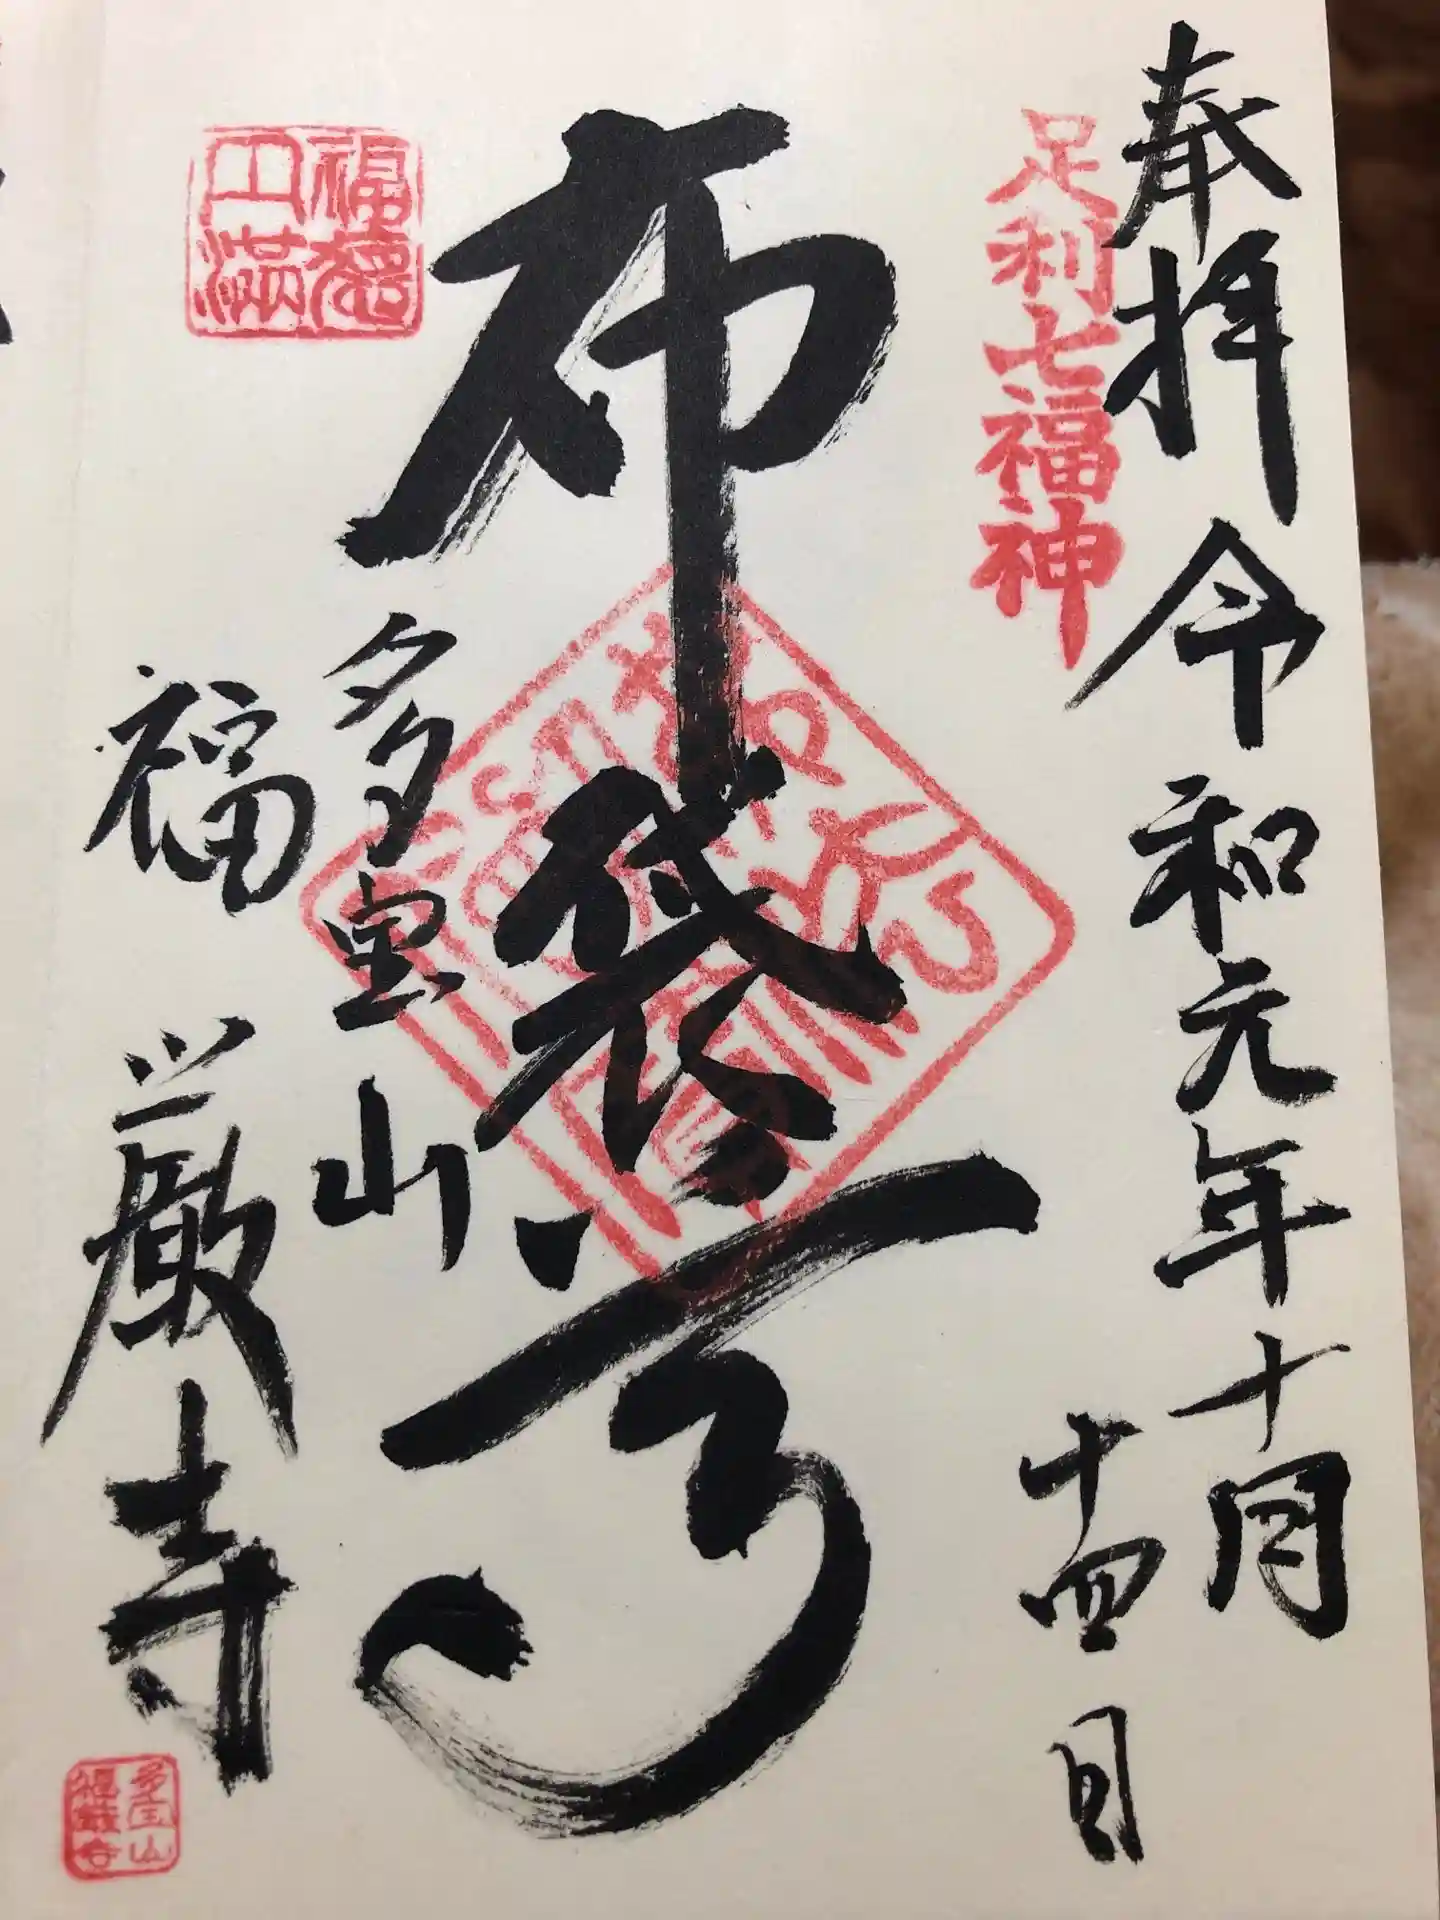 奉拝
令和元年十月
十四日
足利七福神
布袋尊
多宝山
福厳寺
福德
円満
多宝山
福厳寺